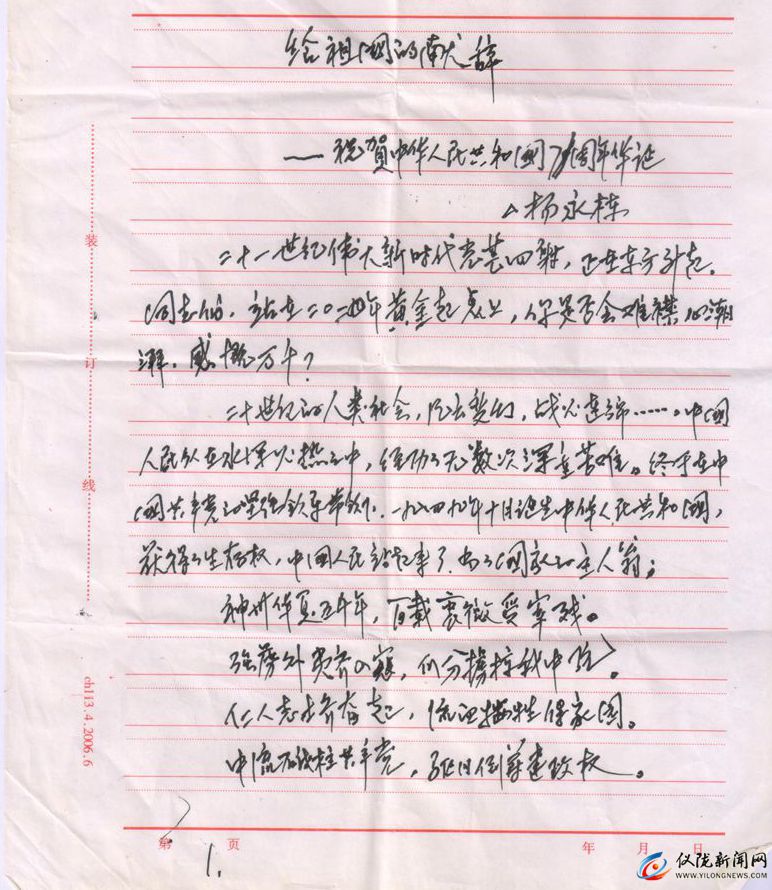 给祖国的献辞
——祝贺中华人民共和国71周年华诞
△杨永栋
二十一世纪伟大新时代,正在东方升起。
同志们,站在二〇二〇年黄金起点上,你是否会难禁心潮
澎湃,感慨万千?
二十世纪的人类社会,风云变幻,战火连绵……。中国
人民从在水深火热之中,经历了无数次深重苦难。终于在中
国共产党的坚强领导下,一九四九年十月诞生中华人民共和国,
获得了生存权,中国人民站起来了,当了国家的主人翁;
神州华夏五千年,百载衰微受宰残。
强虏外夷齐入寇,瓜分掳掠我中华。
仁人志士齐奋起,流血牺牲保家园。
中流砥柱共产党,驱日倒蒋建政权。
装
订
线
ch113.4.2006.6
第 1. 页
年 月 日
仪陇新闻网
WWW.YILONGNEWS.COM